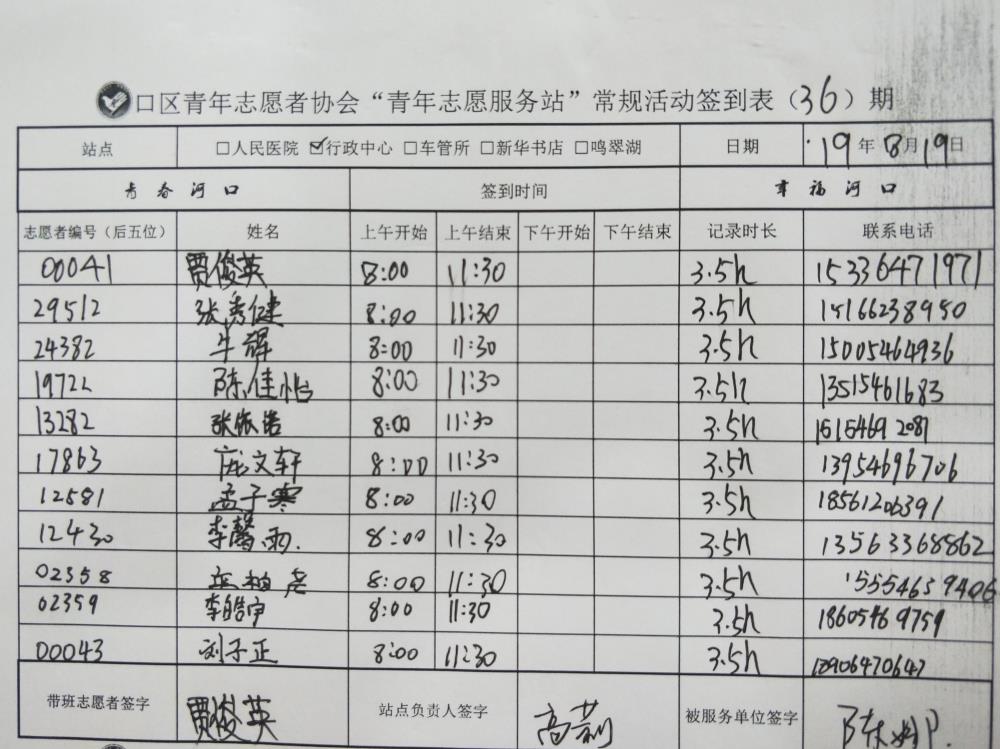 口区青年志愿者协会“青年志愿服务站”常规活动签到表（36）期
站点 □人民医院 ☑行政中心 □车管所 □新华书店 □鸣翠湖 日期 19年8月19日
青春河口 签到时间 幸福河口
志愿者编号（后五位） 姓名 上午开始 上午结束 下午开始 下午结束 记录时长 联系电话
00041 贾俊英 8:00 11:30 3.5h 15336471971
29512 张秀健 8:00 11:30 3.5h 15166238950
24382 牛辉 8:00 11:30 3.5h 15005464936
19722 陈佳怡 8:00 11:30 3.5h 13515461683
13282 张依诺 8:00 11:30 3.5h
17863 庞文轩 8:00 11:30 3.5h 13954696706
12581 孟子寒 8:00 11:30 3.5h 18561206391
12430 李馨雨. 8:00 11:30 3.5h 13563368862
02358 8:00 11:30 3.5h 15554659406
02359 李皓宇 8:00 11:30 3.5h 18605469759
00043 刘子正 8:00 11:30 3.5h
带班志愿者签字 贾俊英 站点负责人签字 高莉 被服务单位签字